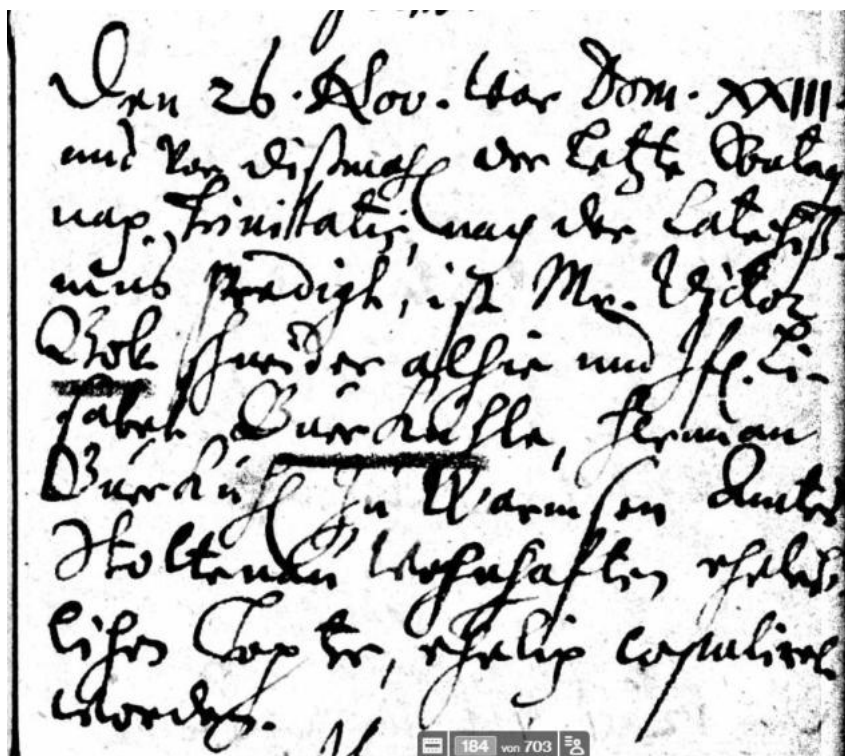 Den 26. Nov. war Dom. XXIII.
und vor dißmahl der letzte Sontag
nach Trinitatis, nach der Catechiß-
mus Predigt, ist Mr. Victor
Bok schneider alhie und Jfr. Li-
sabet Buerkuhle, Herman
Buerkuhl zu Warmsen Amtes
Stoltenau wohnhaften eheleib-
lichen Tochter, ehelich copuliret
worden.
184 von 703